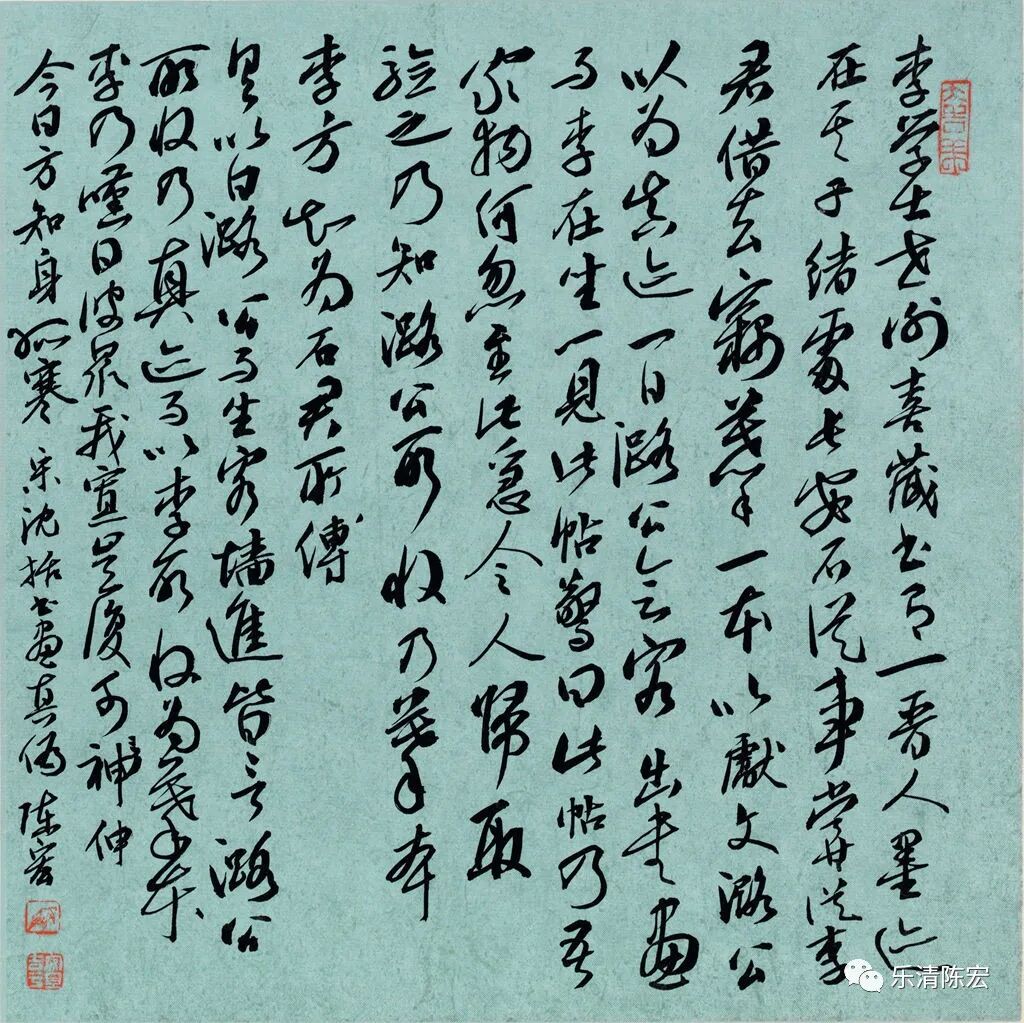 李学士世衡喜藏书有一晋人墨迹
在其子绪處长安石從事尝從李
君借去窃摹一本以獻文潞公
以为真迹一日潞公会客出书画
而李在坐一見此帖驚曰此帖乃吾
家物何忽至此急令人歸取
验之乃知潞公所收乃摹本
李方知为石君所傳
具以白潞公而坐客墙進皆言潞公
所收乃真迹而以李所收为摹本
李乃嘆曰彼众我寡岂復可神伸
今日方知身孤寒 宋沈括书画真偽 陈宏
乐清陈宏